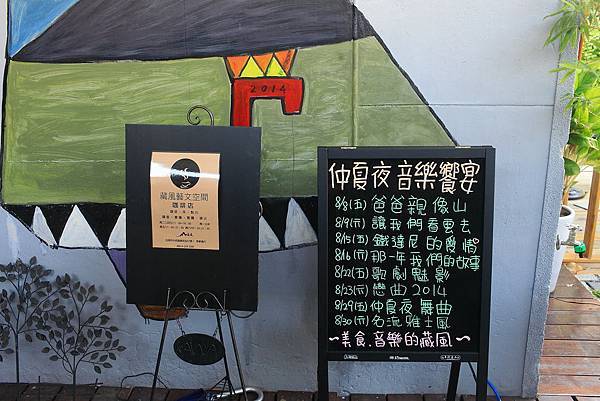 2014
藏風藝文空間
咖啡店
仲夏夜音樂饗宴
8/8(五)爸爸親像山
8/9(六)讓我們看更去
8/15(五)鐵達尼的愛情
8/16(六)那一年我們的故事
8/22(五)歌劇魅影
8/23(六)戀曲2014
8/29(五)仲夏夜舞曲
8/30(六)名流雅士風
~美食.音樂的藏風~